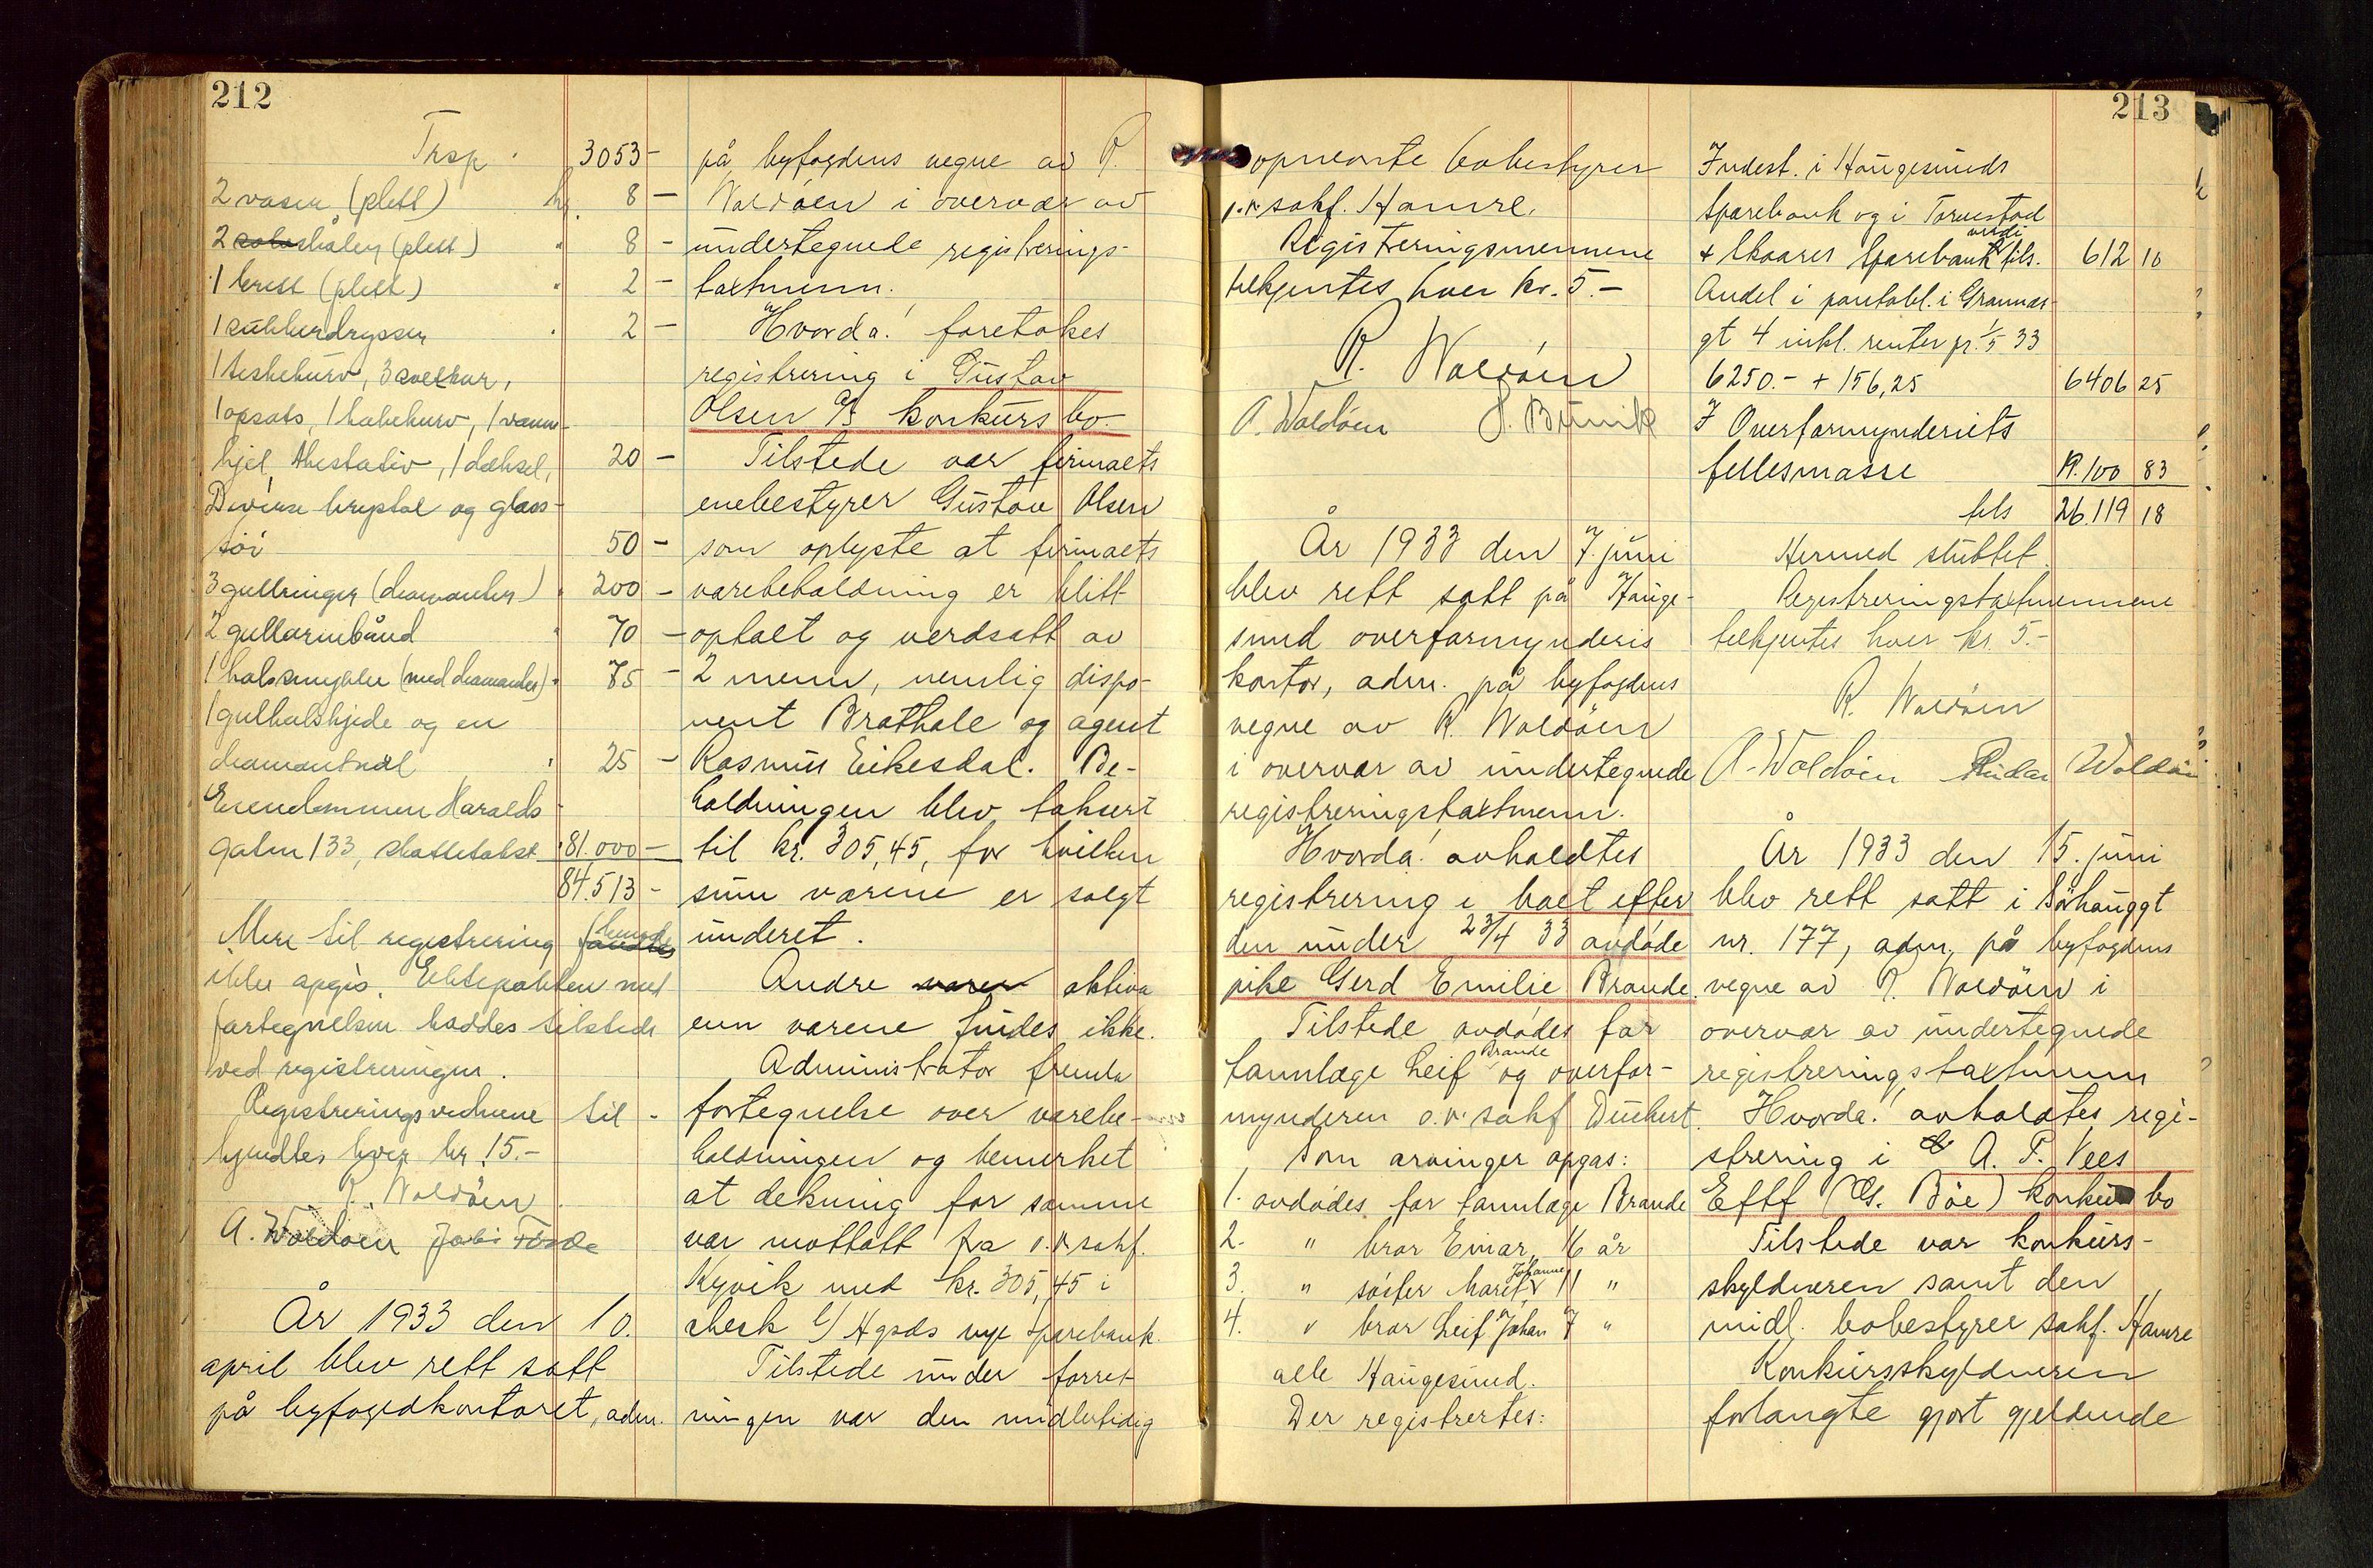 212
Trsp. 3053 -
2 vaser (plett) kr. 8 -
2 skåler (plett) " 8 -
1 brett (plett) " 2 -
1 sukkerdrysser " 2 -
1 teskekurv, 3
1 opsats, 1 kakekurv, 1 vann-
kjel, 20 -
Diverse krystal og glass-
töi 50 -
3 gullringer (diamanter) " 200 -
2 gullarmbånd " 70 -
1 halssmykke (med diamanter) " 75 -
1 gulhalskjede og en
diamantnål " 25 -
Eiendommen Haralds-
gaten 133, skattetakst 81.000 -
84.513 -
Mere til registrering fandtes
ikke opgis. Ektepakten med
fortegnelsen haddes tilstede
ved registreringen.
Registreringsvidnene til-
kjendtes hver kr. 15.-
R. Waldöen
A. Waldöen
År 1933 den 10.
april blev rett satt
på byfogedkontoret, adm.
på byfogdens vegne av R.
Waldöen i overvær av
undertegnede registrerings-
taxtmenn.
Hvorda! foretokes
registrering i Gustav
Olsen A/S konkurs bo.
Tilstede var firmaets
enebestyrer Gustav Olsen
som oplyste at firmaets
varebeholdning er blitt
optalt og verdsatt av
2 menn, nemlig dispo-
nent Brathole og agent
Rasmus Eikesdal. Be-
holdningen blev taksert
til kr. 305,45, for hvilken
sum varene er solgt
underet.
Andre varer aktiva
enn varene findes ikke.
Administrator fremla
fortegnelse over varebe-
holdningen og bemerket
at dekning for samme
var mottatt fra o.r.sakf.
Kyvik med kr. 305,45 i
check i/ Hgsds nye Sparebank.
Tilstede under forret-
ningen var den midlertidig
213
opnevnte bobestyrer
o.r.sakf. Hamre.
Registreringsmennene
tilkjentes hver kr. 5.-
R. Waldöen
A. Waldöen
År 1933 den 7. juni
blev rett satt på Hauge-
sund overformynderis
kontor, adm. på byfogdens
vegne av R. Waldöen
i overvær av undertegnede
registreringstaxtmenn.
Hvorda! avholdtes
registrering i boet efter
den under 23/4 33 avdöde
pike Gerd Emilie Brande.
Tilstede avdödes far
tannlæge Leif Brande og overfor-
mynderen o.r.sakf Dückert.
Som arvinger opgas:
1. avdödes far tannlæge Brande
2. " bror Einar, 16 år
3. " söster Marit Johanne 11 "
4. " bror Leif Johan 7 "
alle Haugesund.
Der registrertes:
Indest. i Haugesunds
Sparebank og i Torvestad
& Skaares Sparebank verdi tils. 612 10
Andel i pantobl. i Grannes-
gt 4 inkl. renter pr. 1/5 33
6250.- + 156,25 6406 25
I Overformynderiets
fellesmasse 19.100 83
tils 26.119 18
Hermed sluttet.
Registreringstaxtmennene
tilkjentes hver kr. 5.-
R. Waldöen
A. Waldöen Reidar Waldöen
År 1933 den 15. juni
blev rett satt i Sörhauggt
nr. 177, adm. på byfogdens
vegne av R. Waldöen i
overvær av undertegnede
registreringstaxtmenn
Hvorda! avholdtes regi-
strering i A. T. Vees
Eftf (Gs. Böe) konkurs bo
Tilstede var konkurs-
skyldneren samt den
midl. bobestyrer sakf. Hamre
Konkursskyldneren
forlangte gjort gjeldende